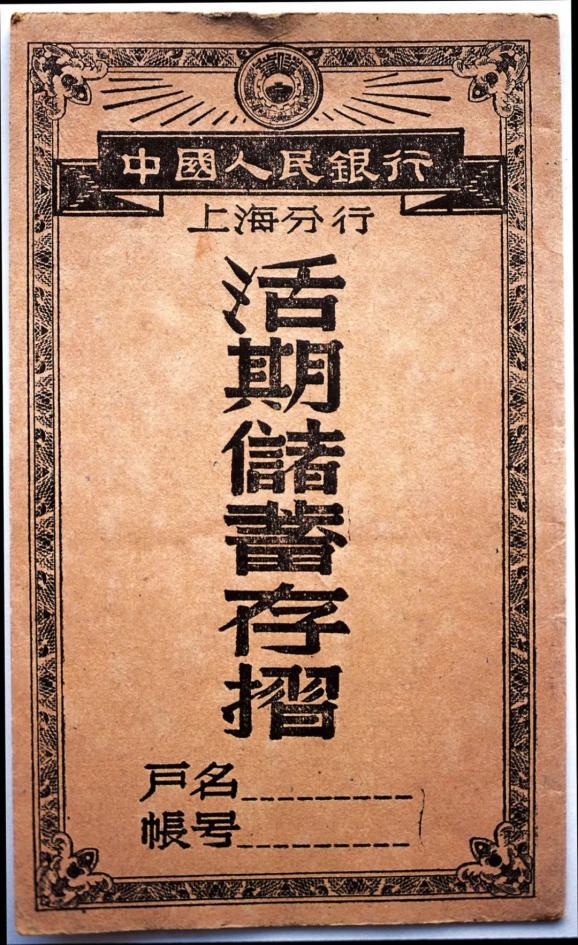 中國人民銀行
上海分行
活期儲蓄存摺
戶名
帳号